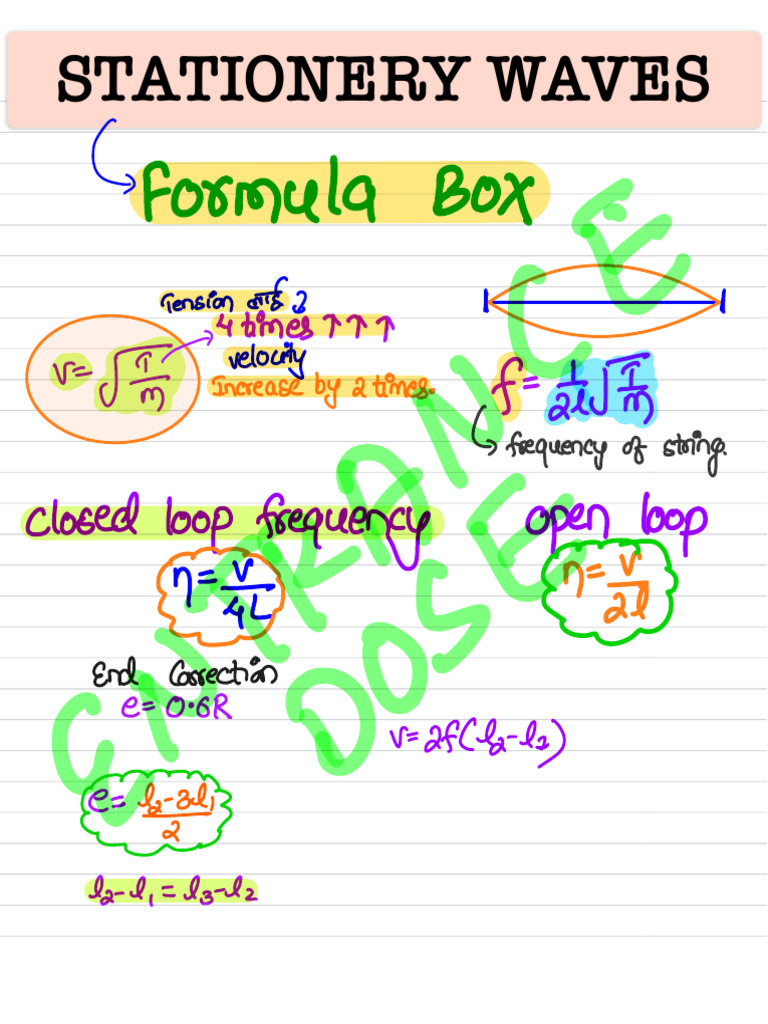 STATIONERY WAVES
Formula Box
Tension वाढ
4 times ↑↑↑
velocity
Increase by 2 times.
v = √(T/m)
f = 1/2l √(T/m)
frequency of string.
closed loop frequency
open loop
η = v/4L
η = v/2l
End Correction
e = 0.6R
v = 2f(l₂-l₁)
e = l₂-3l₁/2
l₂-l₁ = l₃-l₂
ENTRANCE
DOSE